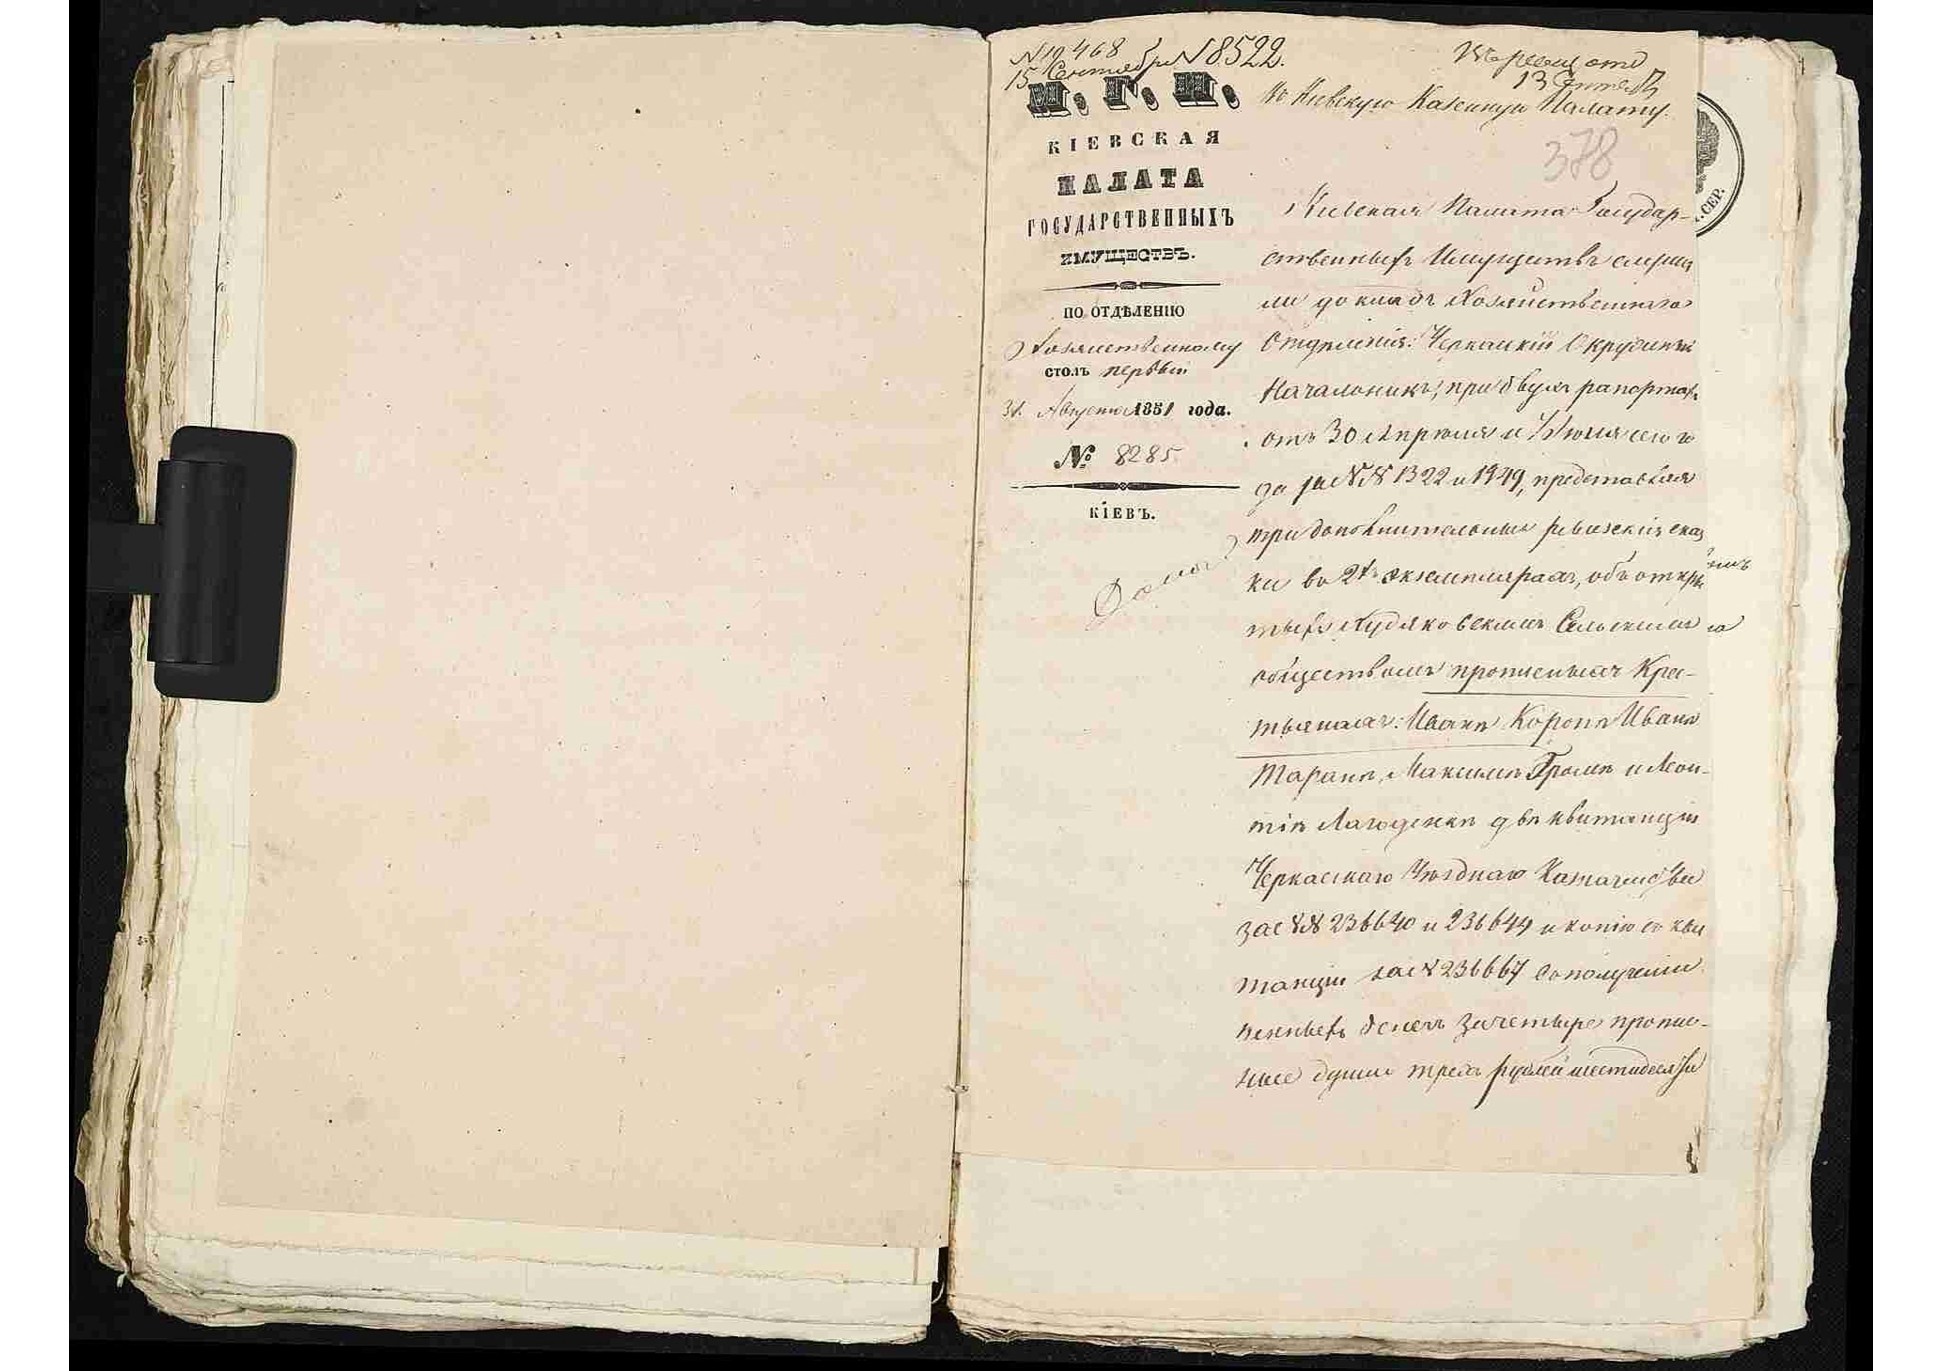 № 19468
15 Сентября № 8522.
13 Сентяб
М. Г. И.
КІЕВСКАЯ
ПАЛАТА
ГОСУДАРСТВЕННЫХЪ
ИМУЩЕСТВЪ.
ПО ОТДѢЛЕНІЮ
Хозяйственному
столъ первый
31. Августа 1851 года.
№ 8285
КІЕВЪ.
Въ Кіевскую Казенную Палату.
378
Кіевская Палата Государ-
ственныхъ Имуществъ слуша
ли докладъ Хозяйственнаго
Отдѣленія: Черкаскій Окружный
Начальникъ, при двухъ рапортахъ
отъ 30 Апрѣля и Іюня сего го
да за №№ 1322 и 1949, представляя
три дополнительныя ревизскія сказ
ки въ 2хъ экземплярахъ, объ откры
тыхъ Худяковскимъ Сельскимъ
обществомъ прописныхъ Крес-
тьянахъ: Иванѣ Коропѣ Иванѣ
Таранѣ, Максимѣ Громѣ и Леон-
тіѣ двѣ квитанціи
Черкаскаго Уѣзднаго Казначейства
за №№ 236640 и 236644 и копію съ кви
танціи за № 236667 о полученіи
денегъ за четыре пропис-
ныe души трехъ рублей шестидесяти
СЕР.